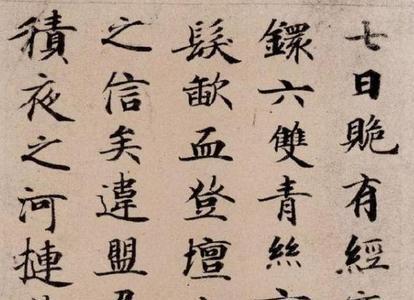 七日有經
鐶六雙青絲
髮歃血登壇
之信矣違盟
積夜之河摙